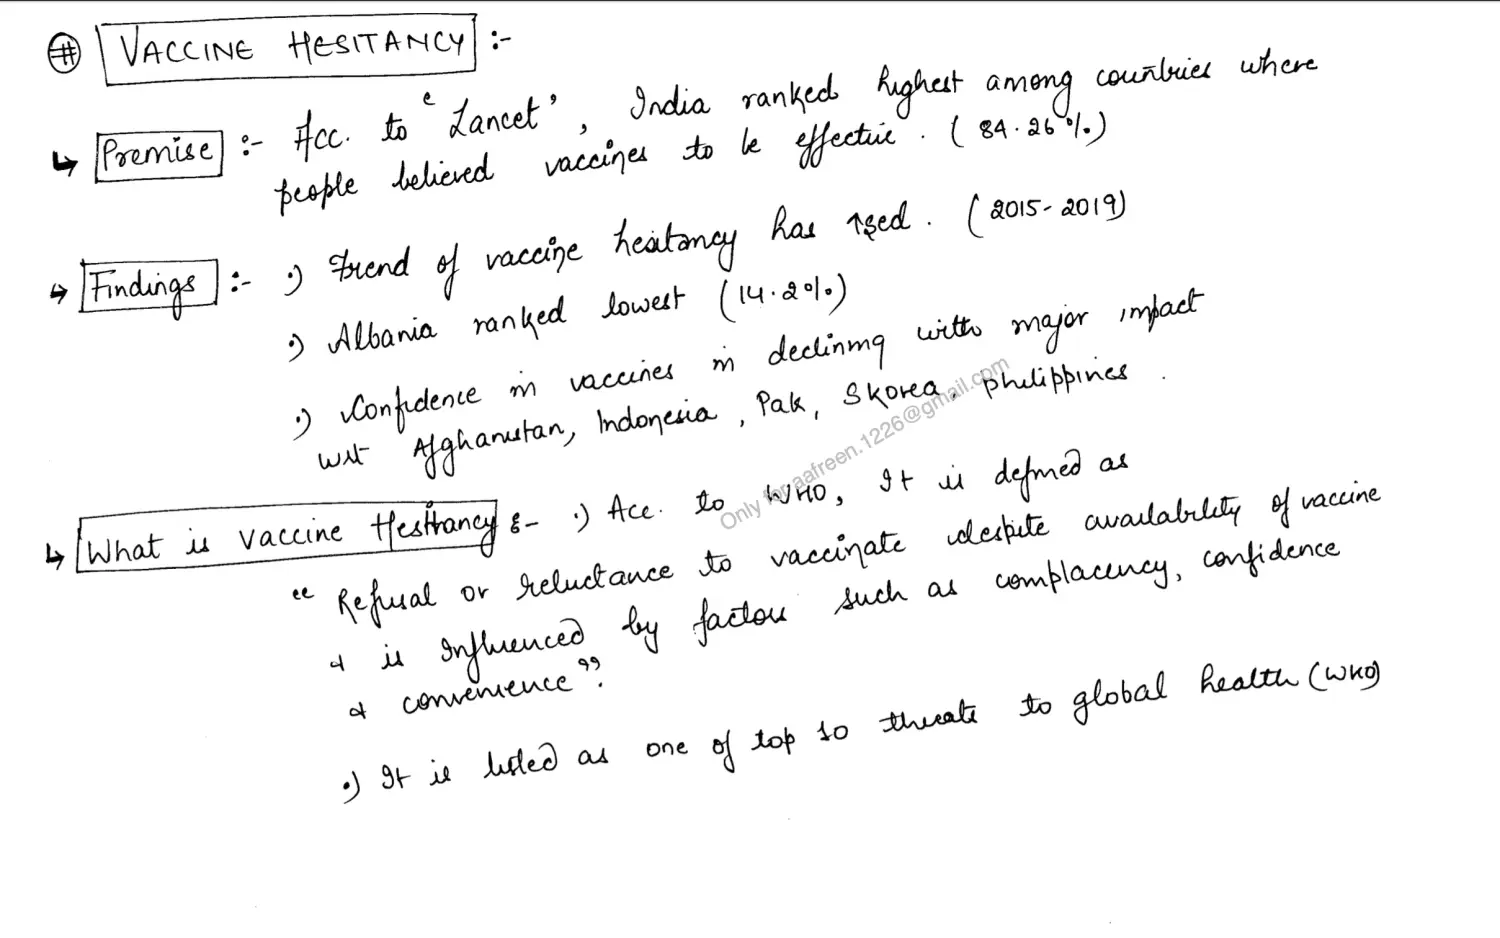 # VACCINE HESITANCY :-
↳ Premise :- Acc. to ‘Lancet’, India ranked highest among countries where
people believed vaccines to be effective. (84.26%)
↳ Findings :- •) Trend of vaccine hesitancy has ↑sed. (2015-2019)
•) Albania ranked lowest (14.2%)
•) Confidence in vaccines in declining with major impact
wrt Afghanistan, Indonesia, Pak, S Korea, Philippines.
↳ What is Vaccine Hesitancy :- •) Acc. to WHO, It is defined as
“Refusal or reluctance to vaccinate despite availability of vaccine
& is influenced by factors such as complacency, confidence
& convenience”.
•) It is listed as one of top 10 threats to global health (WHO)
Only for aafreen.1226@gmail.com